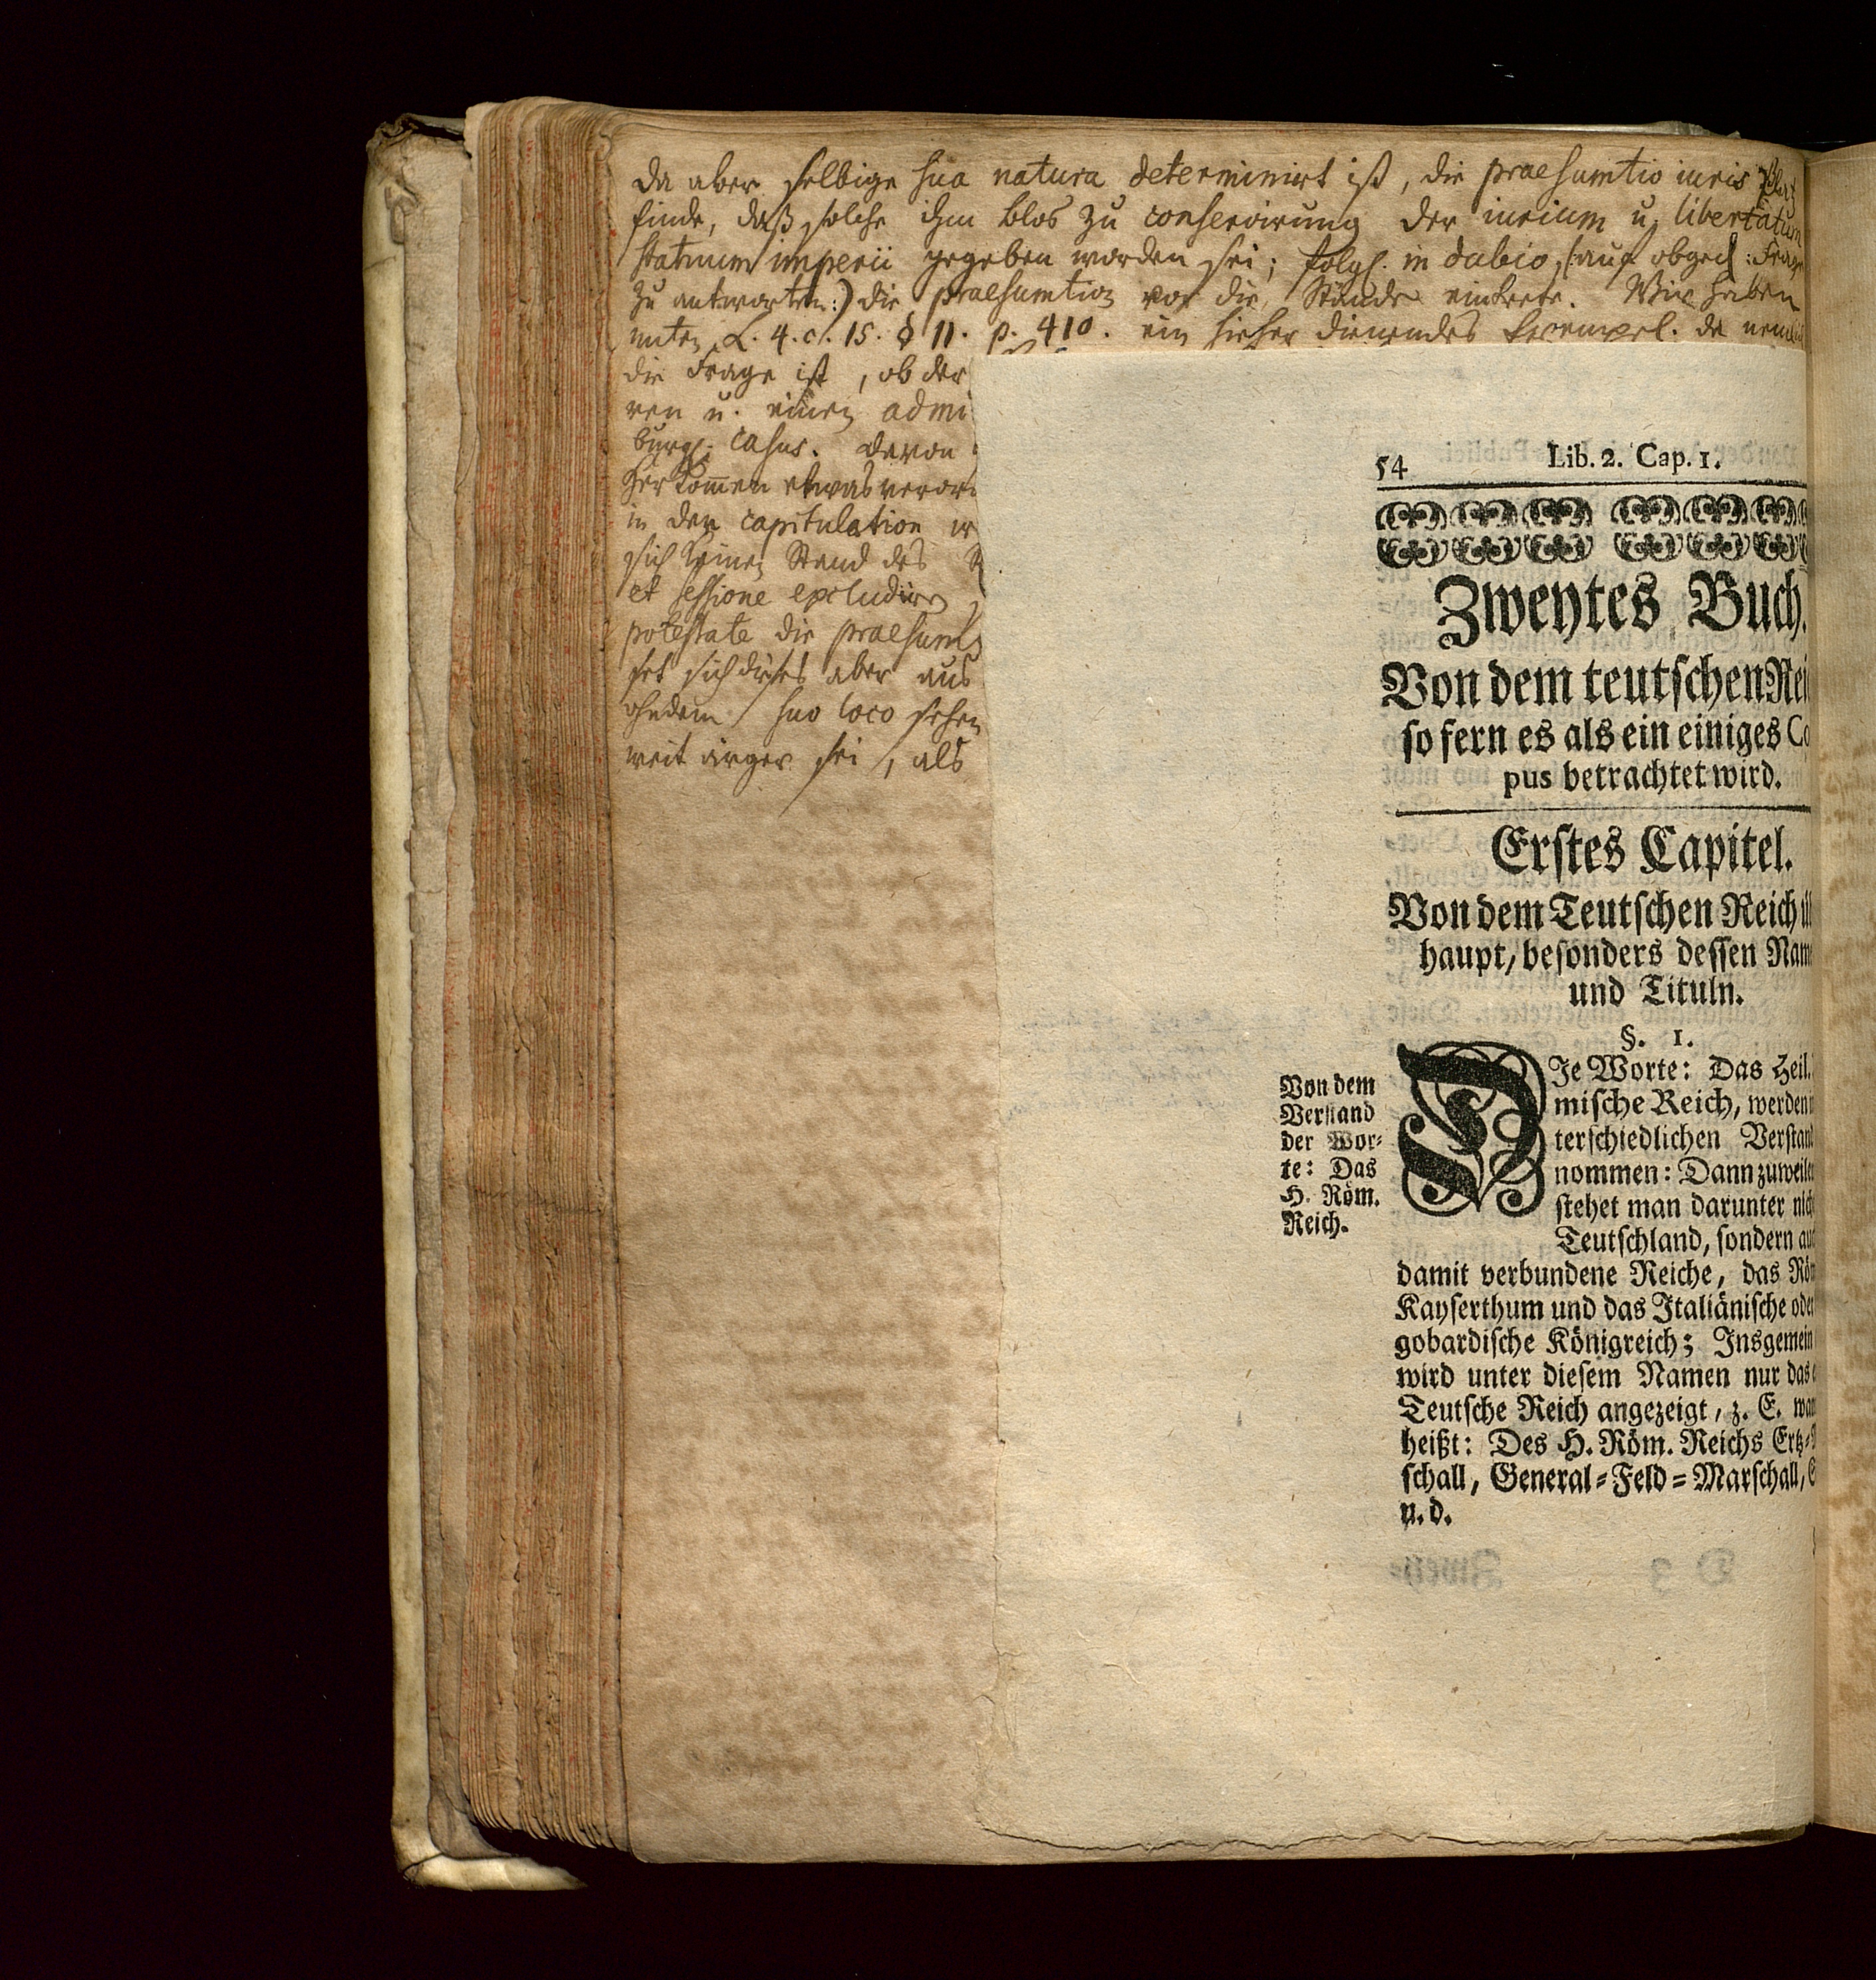 da aber selbige sua natura determinirt ist, die praesumtio iuris Platz
finde, daß solche ihm blos zu conservirung der iurium u. libertatum
statuum imperii gegeben worden sei; folgl. in dubio, (:auf obged: Frage
zu antworten:) die praesumtion vor die Stände eintrete. Wir haben
unten L. 4. c. 15. § 11. p. 410. ein hieher dienendes Exempel. da neml.
die Frage ist, ob der
ren u. einen admi
burgl. casus. davon
Herkommen etwas veror
in der capitulation
sich keinen Stand des
et sessione excludiren
potestate die praesumt
set sich dieses aber aus
ohndem suo loco sehen
weit ärger sei, als
54 Lib. 2. Cap. 1.
Zweytes Buch.
Von dem teutschen Rei
so fern es als ein einiges Co
pus betrachtet wird.
Erstes Capitel.
Von dem Teutschen Reich ü
haupt, besonders dessen Nam
und Tituln.
§. 1.
Von dem
Verstand
der Wor-
te: Das
H. Röm.
Reich.
DIe Worte: Das Heil.
mische Reich, werden
terschiedlichen Verstan
nommen: Dann zuweile
stehet man darunter nich
Teutschland, sondern au
damit verbundene Reiche, das Röm
Kayserthum und das Italiänische oder
gobardische Königreich; Insgemein
wird unter diesem Namen nur das
Teutsche Reich angezeigt, z. E. wan
heißt: Des H. Röm. Reichs Ertz-
schall, General-Feld-Marschall,
u. d.